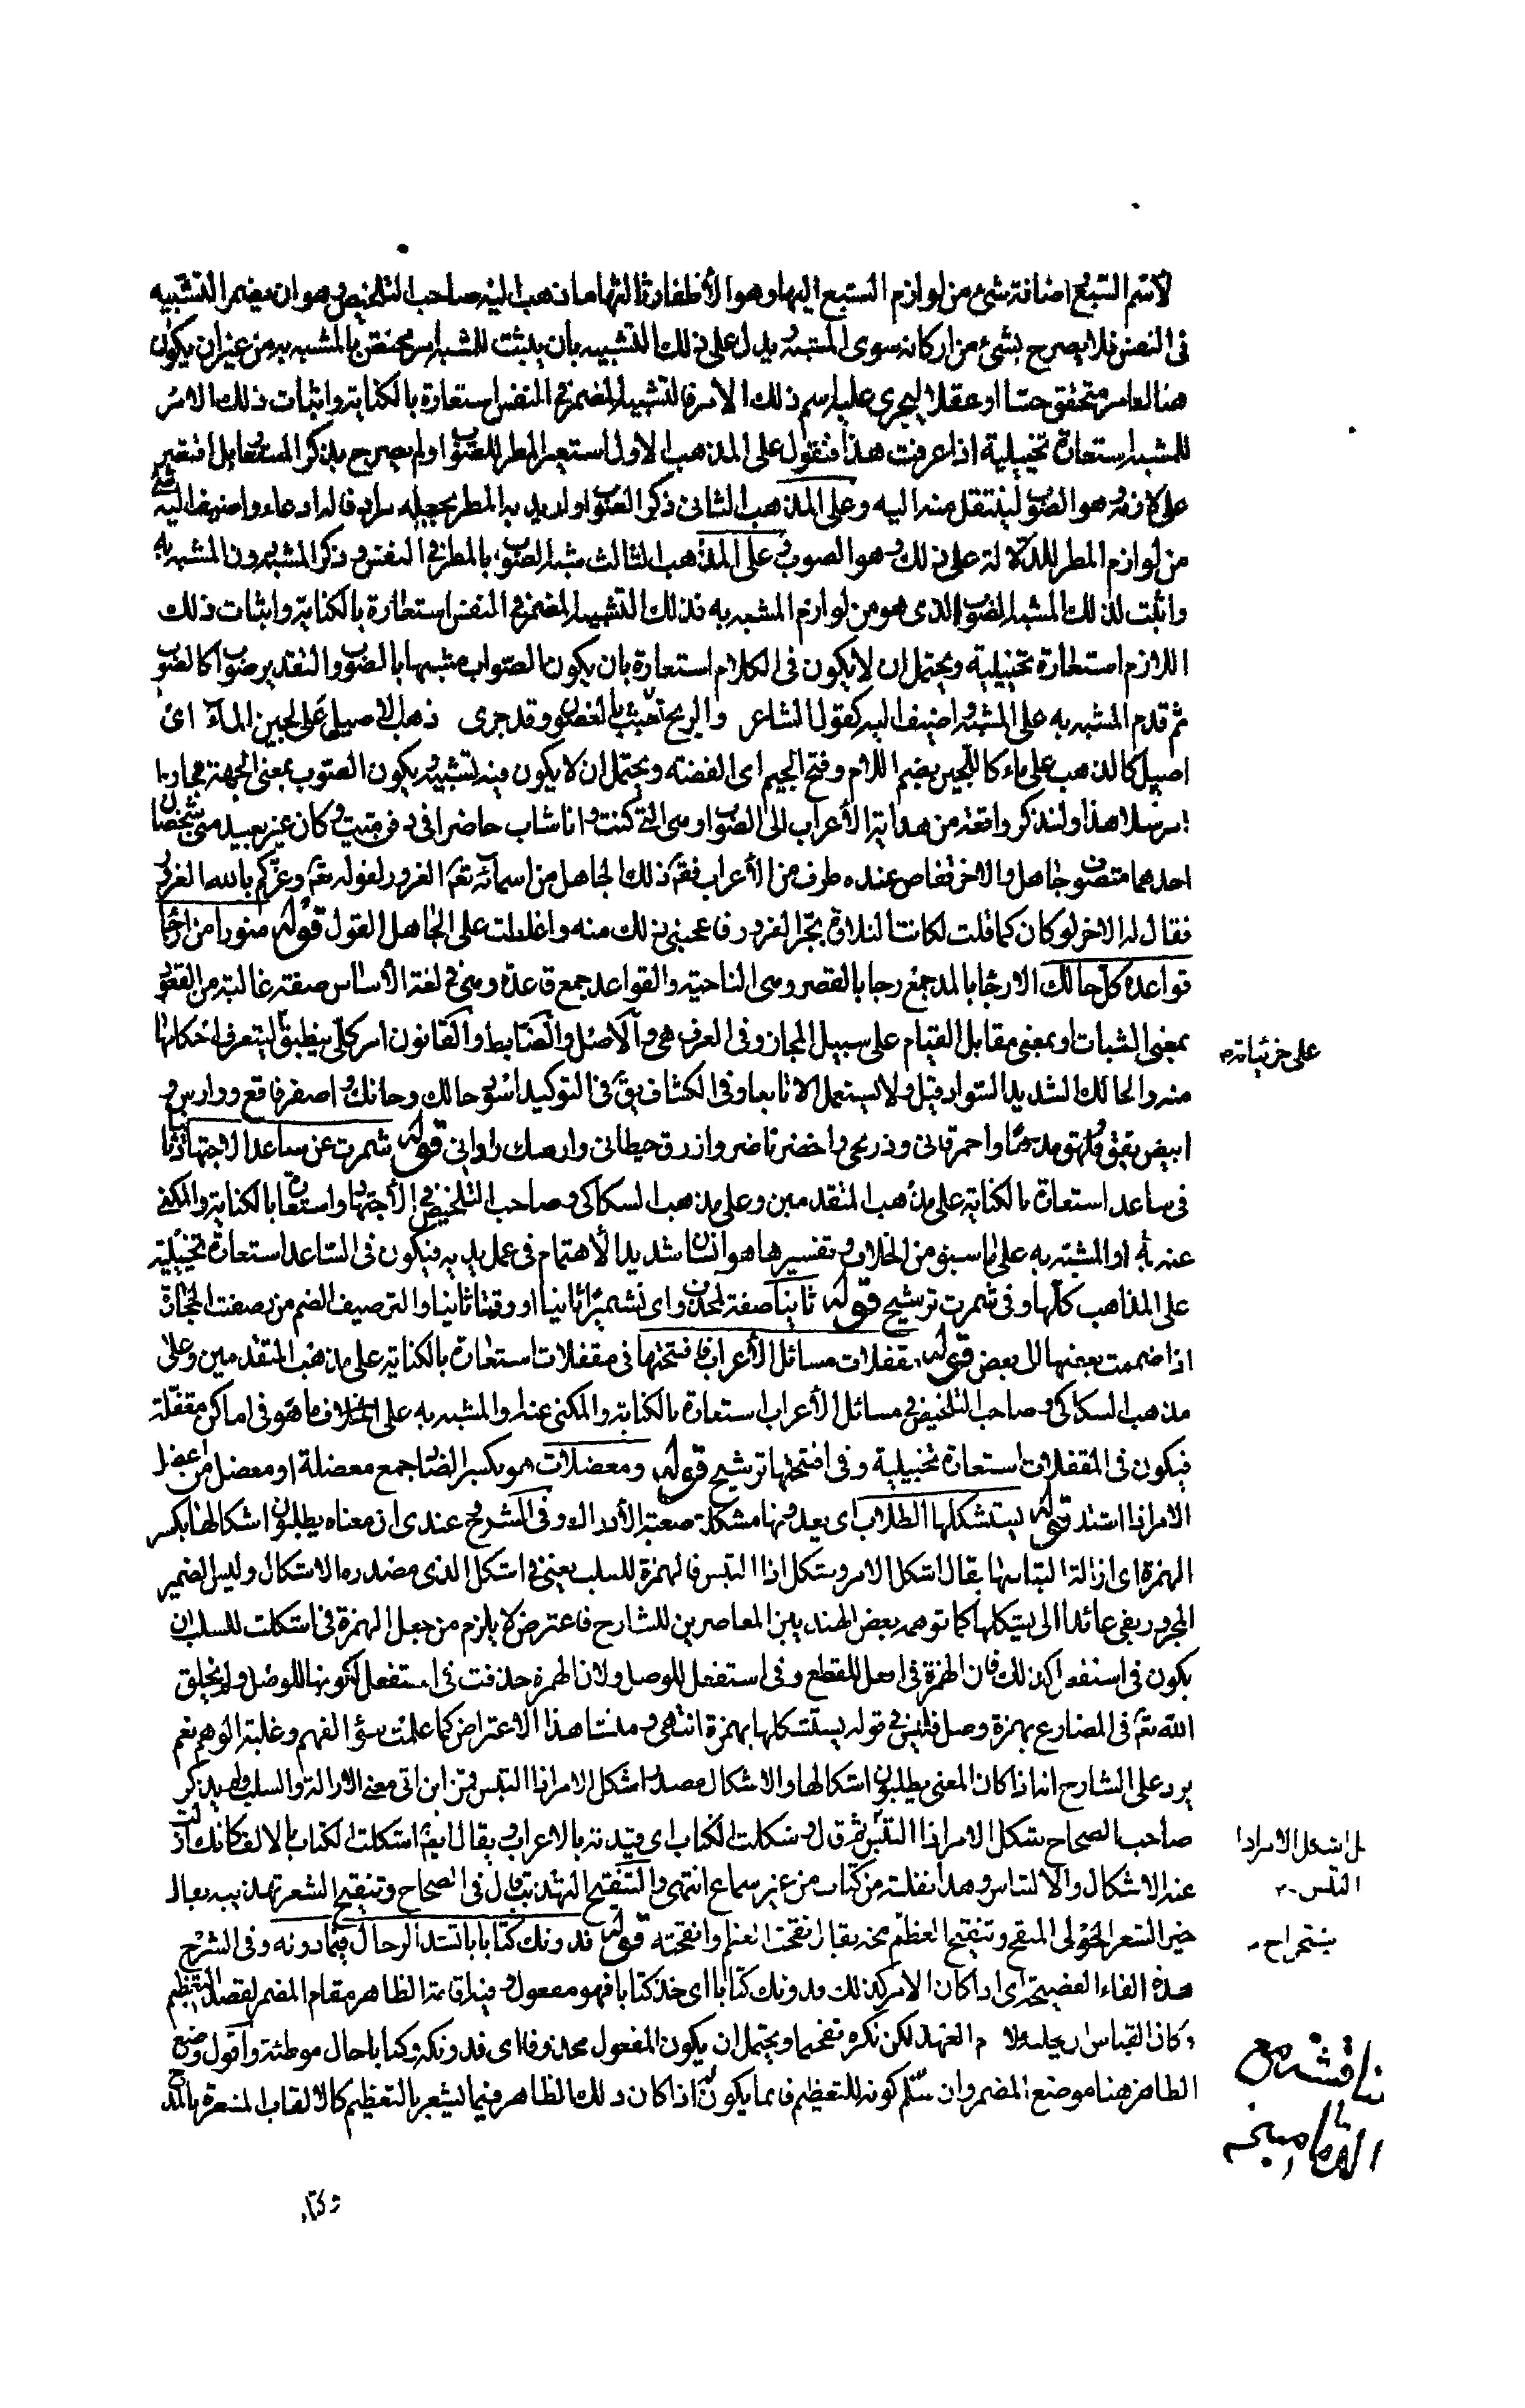 لاسم السبع اضافة شئ من لوازم السبع اليها وهو الأظفار ثالثها ما ذهب اليه صاحب التلخيص وهو ان يضمر التشبيه
فى النفس فلا يصرح بشئ من اركانه سوى المشبه ويدل على ذلك التشبيه بان يثبت للشبه امر مختص بالمشبه به من غير ان يكون
هنالك امر متحقق حسا او عقلا يجرى عليه اسم ذلك الامر فالتشبيه المضمر فى النفس استعارة بالكناية واثبات ذلك الامر
للمشبه استعارة تخييلية اذا عرفت هذا فنقول على المذهب الاول استعير المطر للصواب ولم يصرح بذكر المستعار بل اقتصر
على لازمه وهو الصوب لينتقل منه اليه وعلى المذهب الثانى ذكر الصواب واريد به المطر بجعله مرادفا له ادعاء واضيف اليه شئ
من لوازم المطر للدلالة على ذلك وهو الصوب وعلى المذهب الثالث شبه الصواب بالمطر فى النفس وذكر المشبه دون المشبه به
واثبت لذلك المشبه الصوب الذى هو من لوازم المشبه به فذلك التشبيه المضمر فى النفس استعارة بالكناية واثبات ذلك
اللازم استعارة تخييلية ويحتمل ان لا يكون فى الكلام استعارة بان يكون الصواب مشبها بالصوب والتقدير صواب كالصوب
ثم قدم المشبه به على المشبه واضيف اليه كقول الشاعر والريح تعبث بالغصون وقد جرى ذهب الاصيل على لجين الماء اى
اصيل كالذهب على ماء كاللجين بضم اللام وفتح الجيم اى الفضة ويحتمل ان لا يكون فيه تشبيه ويكون الصوب بمعنى الجهة مجازا
مرسلا هذا ولنذكر واقعة من هداية الأعراب الى الصواب وهى انى كنت وانا شاب حاضرا فى دفن ميت وكان غير بعيد منى شخصان
احدهما متصوف جاهل والاخر قاص عنده طرف من الأعراب فقرء ذلك الجاهل من اسمائه تعم الغرور لقوله تعم وغركم بالله الغرور
فقال له الاخر لو كان كما قلت لكانت التلاوة بجر الغرور فاعجبنى ذلك منه واغلظت على الجاهل القول قوله منورا من ارجاء
قواعده كل حالك الارجاء بالمد جمع رجا بالقصر وهى الناحية والقواعد جمع قاعدة وهى فى لغة الأساس صفة غالبة من القعود
بمعنى الثبات او بمعنى مقابل القيام على سبيل المجاز وفى العرف هى والاصل والضابط والقانون امر كلى ينطبق ليتعرف احكامها
على جزئياته
منه والحالك الشديد السواد قيل ولا يستعمل الا تابعا وفى الكشاف يق فى التوكيد اسود حالك وحانك واصفر فاقع ووارس و
ابيض يقق ولهق واحمر قانى وذريحى واخضر ناضر وازرق خطبانى وارمك رادانى قوله شمرت عن ساعد الاجتهاد ثانيا
فى ساعد استعارة بالكناية على مذهب المتقدمين وعلى مذهب السكاكى وصاحب التلخيص فى الأجتهاد استعارة بالكناية والمكنى
عنه به او المشبه به على ما سبق من الخلاف فى تفسيرها هو انسان شديد الأهتمام فى عمل يديه فيكون فى الساعد استعارة تخييلية
على المذاهب كلها وفى شمرت ترشيح قوله ثانيا صفة لمحذوف اى تشميرا ثانيا او وقتا ثانيا والترصيف الضم من رصفت الحجارة
اذا ضممت بعضها الى بعض قوله مقفلات مسائل الأعراب فافتتحها فى مقفلات استعارة بالكناية على مذهب المتقدمين وعلى
مذهب السكاكى وصاحب التلخيص فى مسائل الأعراب استعارة بالكناية والمكنى عنه او المشبه به على الخلاف ما هو فى اماكن مقفلة
فيكون فى المقفلات استعارة تخييلية وفى افتتحتها ترشيح قوله ومعضلات هو بكسر الضاد جمع معضلة او معضل من اعضل
الامر اذا اشتد قوله يستشكلها الطلاب اى يعدونها مشكلة صعبة الأدراك وفى الشرح عندى ان معناه يطلبون اشكالها بكسر
الهمزة اى ازالة التباسها يقال اشكل الامر وشكل اذا التبس فالهمزة للسلب يعنى فى اشكل الذى مصدره الاشكال وليس الضمير
المجرور يفى عائدا الى يستشكلها كما توهمه بعض الهنديين المعاصرين للشارح فاعترض لا يلزم من جعل الهمزة فى اشكلت للسلب ان
يكون فى استفعل كذلك فان الهمزة فى افعل للقطع وفى استفعل للوصل ولان الهمزة حذفت فى استفعل لكونها للوصل ولم يخلق
الله تعم فى المضارع همزة وصل فليس فى قوله يستشكلها همزة انتهى ومنشا هذا الاعتراض كما علمت سوء الفهم وغلبة الوهم نعم
يرد على الشارح انه اذا كان المعنى يطلبون اشكالها والاشكال مصدر اشكل الامر اذا التبس فمن اين اتى معنى الازالة والسلب ولم يذكر
صاحب الصحاح شكل الامر اذا التبس ثم قال وشكلت الكتاب اى قيدته بالاعراب ويقال ايضا اشكلت الكتاب بالالف كانك ازلت
بل اشكل الامر اذا
التبس
عنه الاشكال والالتباس وهذا نقلته من كتاب من غير سماع انتهى والتنقيح التهذيب قال فى الصحاح وتنقيح الشعر تهذيبه يقال
خير الشعر الحولى المنقح وتنقيح العظم يقال نقحت العظم وانتقحته قوله فدونك كتابا تشد الرحال فيما دونه وفى الشرح
استخراج
هذه الفاء الفصيحة اى اذا كان الامر كذلك فدونك كتابا اى خذ كتابا فهو مفعول وفيه اقامة الظاهر مقام المضمر لقصد التعظيم
وكان القياس ان يجليه بلام العهد لكن نكره تفخيما ويحتمل ان يكون المفعول محذوفا اى فدونكه وكتابا حال موطئة واقول وضع
الظاهر هنا موضع المضمر وان سلم كونه للتعظيم فانما يكون اذا كان ذلك الظاهر فيما يشعر بالتعظيم كالالقاب المشعرة بالمدح
مناقشة مع
الدمامينى